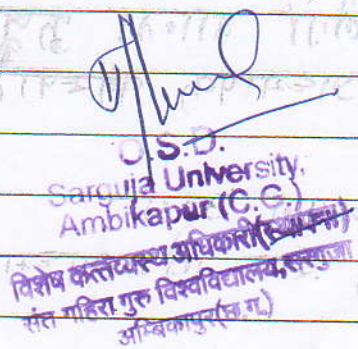 O.S.D.
Sarguja University,
Ambikapur (C.G.)
विशेष कर्त्तव्यस्थ अधिकारी(स्थापना)
संत गहिरा गुरु विश्वविद्यालय,सरगुजा
अम्बिकापुर(छ.ग.)